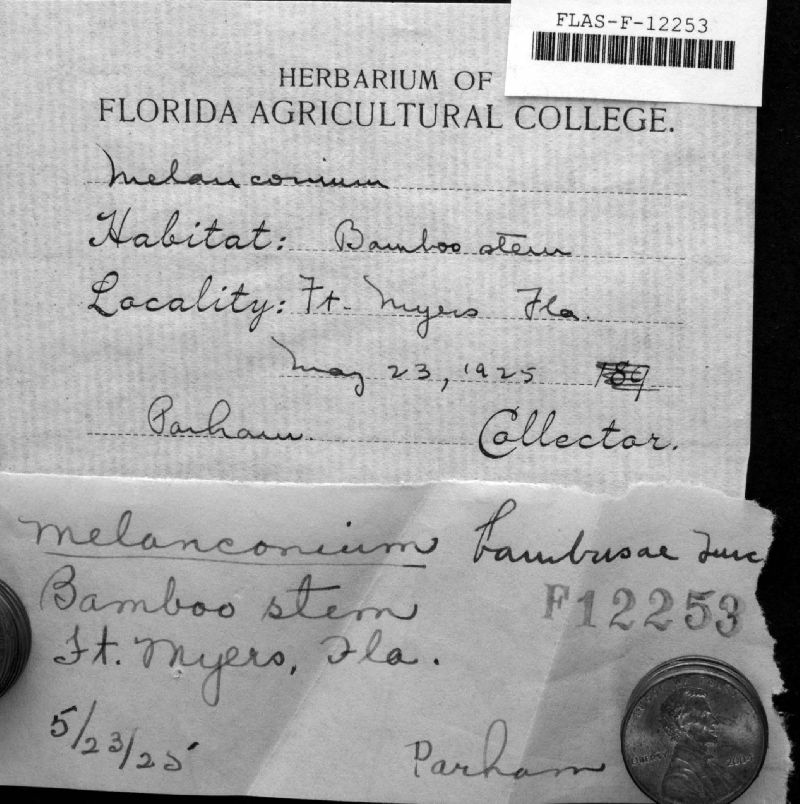 FLAS-F-12253
HERBARIUM OF
FLORIDA AGRICULTURAL COLLEGE.
Melanconium
Habitat: Bamboo stem
Locality: Ft. Myers Fla.
May 23, 1925 189
Parham. Collector.
Melanconium bambusae
Bamboo stem F12253
Ft. Myers, Fla.
5/23/25 Parham